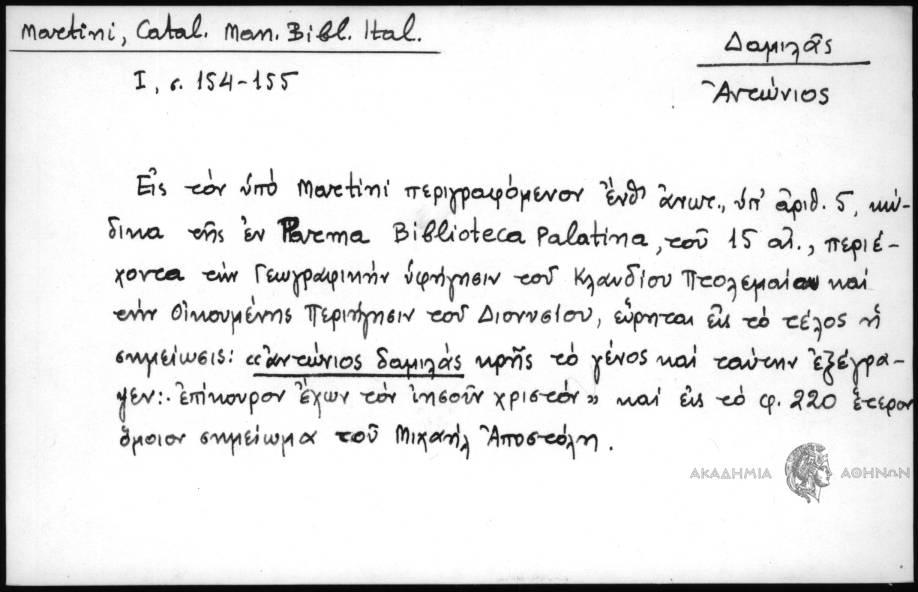 Martini, Catal. Man. Bibl. Ital.
I, σ. 154-155
Δαμιλᾶς
Ἀντώνιος
Εἰς τὸν ὑπὸ Martini περιγραφόμενον ἔνθ' ἀνωτ., ὑπ' ἀριθ. 5, κώ-
δικα τῆς ἐν Parma Biblioteca Palatina, τοῦ 15 αἰ., περιέ-
χοντα τὴν Γεωγραφικὴν ὑφήγησιν τοῦ Κλαυδίου Πτολεμαίου καὶ
τὴν Οἰκουμένης Περιήγησιν τοῦ Διονυσίου, εὕρηται εἰς τὸ τέλος ἡ
σημείωσις: «ἀντώνιος δαμιλὰς κρῆς τὸ γένος καὶ ταύτην ἐξέγρα-
ψεν:· ἐπίκουρον ἔχων τὸν ἰησοῦν χριστόν» καὶ εἰς τὸ φ. 220 ἕτερον
ὅμοιον σημείωμα τοῦ Μιχαὴλ Ἀποστόλη.
ΑΚΑΔΗΜΙΑ ΑΘΗΝΩΝ